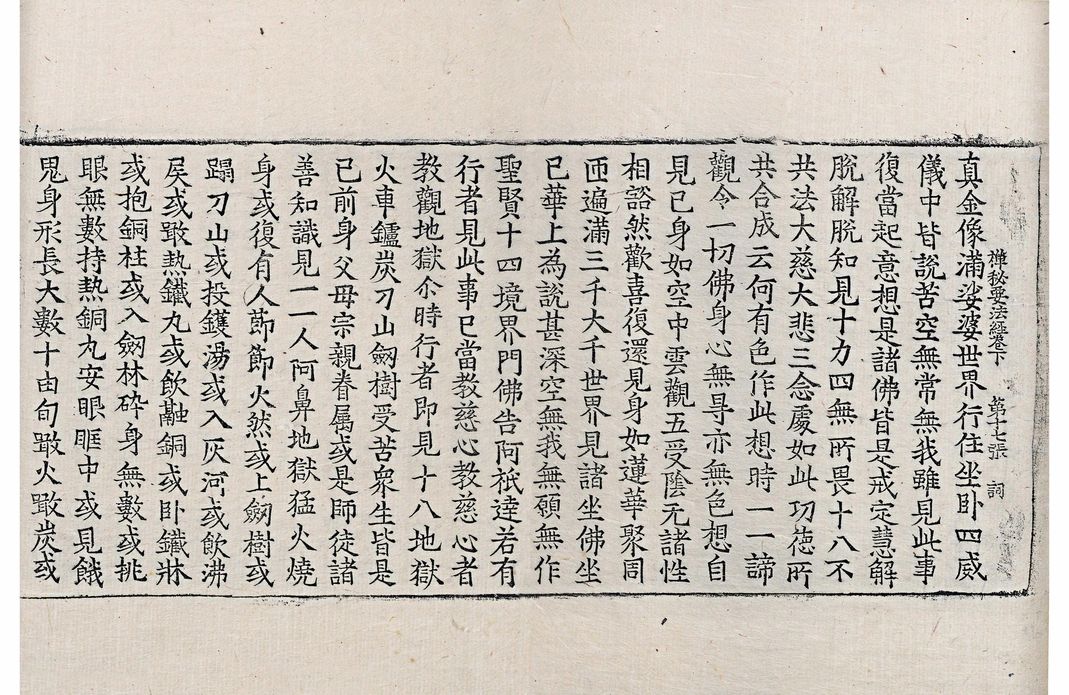 禪秘要法經卷下 第十七張 詞
真金像滿娑婆世界行住坐卧四威
儀中皆說苦空無常無我雖見此事
復當起意想是諸佛皆是戒定慧解
脫解脫知見十力四無所畏十八不
共法大慈大悲三念處如此功德所
共合成云何有色作此想時一一諦
觀令一切佛身心無㝵亦無色想自
見己身如空中雲觀五受陰无諸性
相豁然歡喜復還見身如蓮華聚周
匝遍滿三千大千世界見諸坐佛坐
已華上為說甚深空無我無願無作
聖賢十四境界門佛告阿祇達若有
行者見此事已當教慈心教慈心者
教觀地獄尒時行者即見十八地獄
火車鑪炭刀山劒樹受苦衆生皆是
已前身父母宗親眷属或是師徒諸
善知識見一一人阿鼻地獄猛火燒
身或復有人節節火然或上劒樹或
蹋刀山或投鑊湯或入灰河或飲沸
屎或噉熱鐵丸或飲融銅或卧鐵牀
或抱銅柱或入劒林碎身無數或挑
眼無數持熱銅丸安眼眶中或見餓
鬼身形長大數十由旬噉火噉炭或